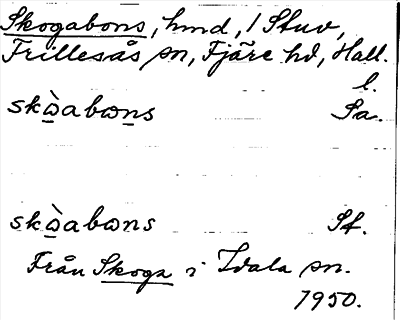 Skogabons, hmd, 1 Stuv,
Frillesås sn, Fjäre hd, Hall.
l.
skɷ̀abɷns Sa.
skɷ̀abɷns St.
Från Skoga i Idala sn.
1950.